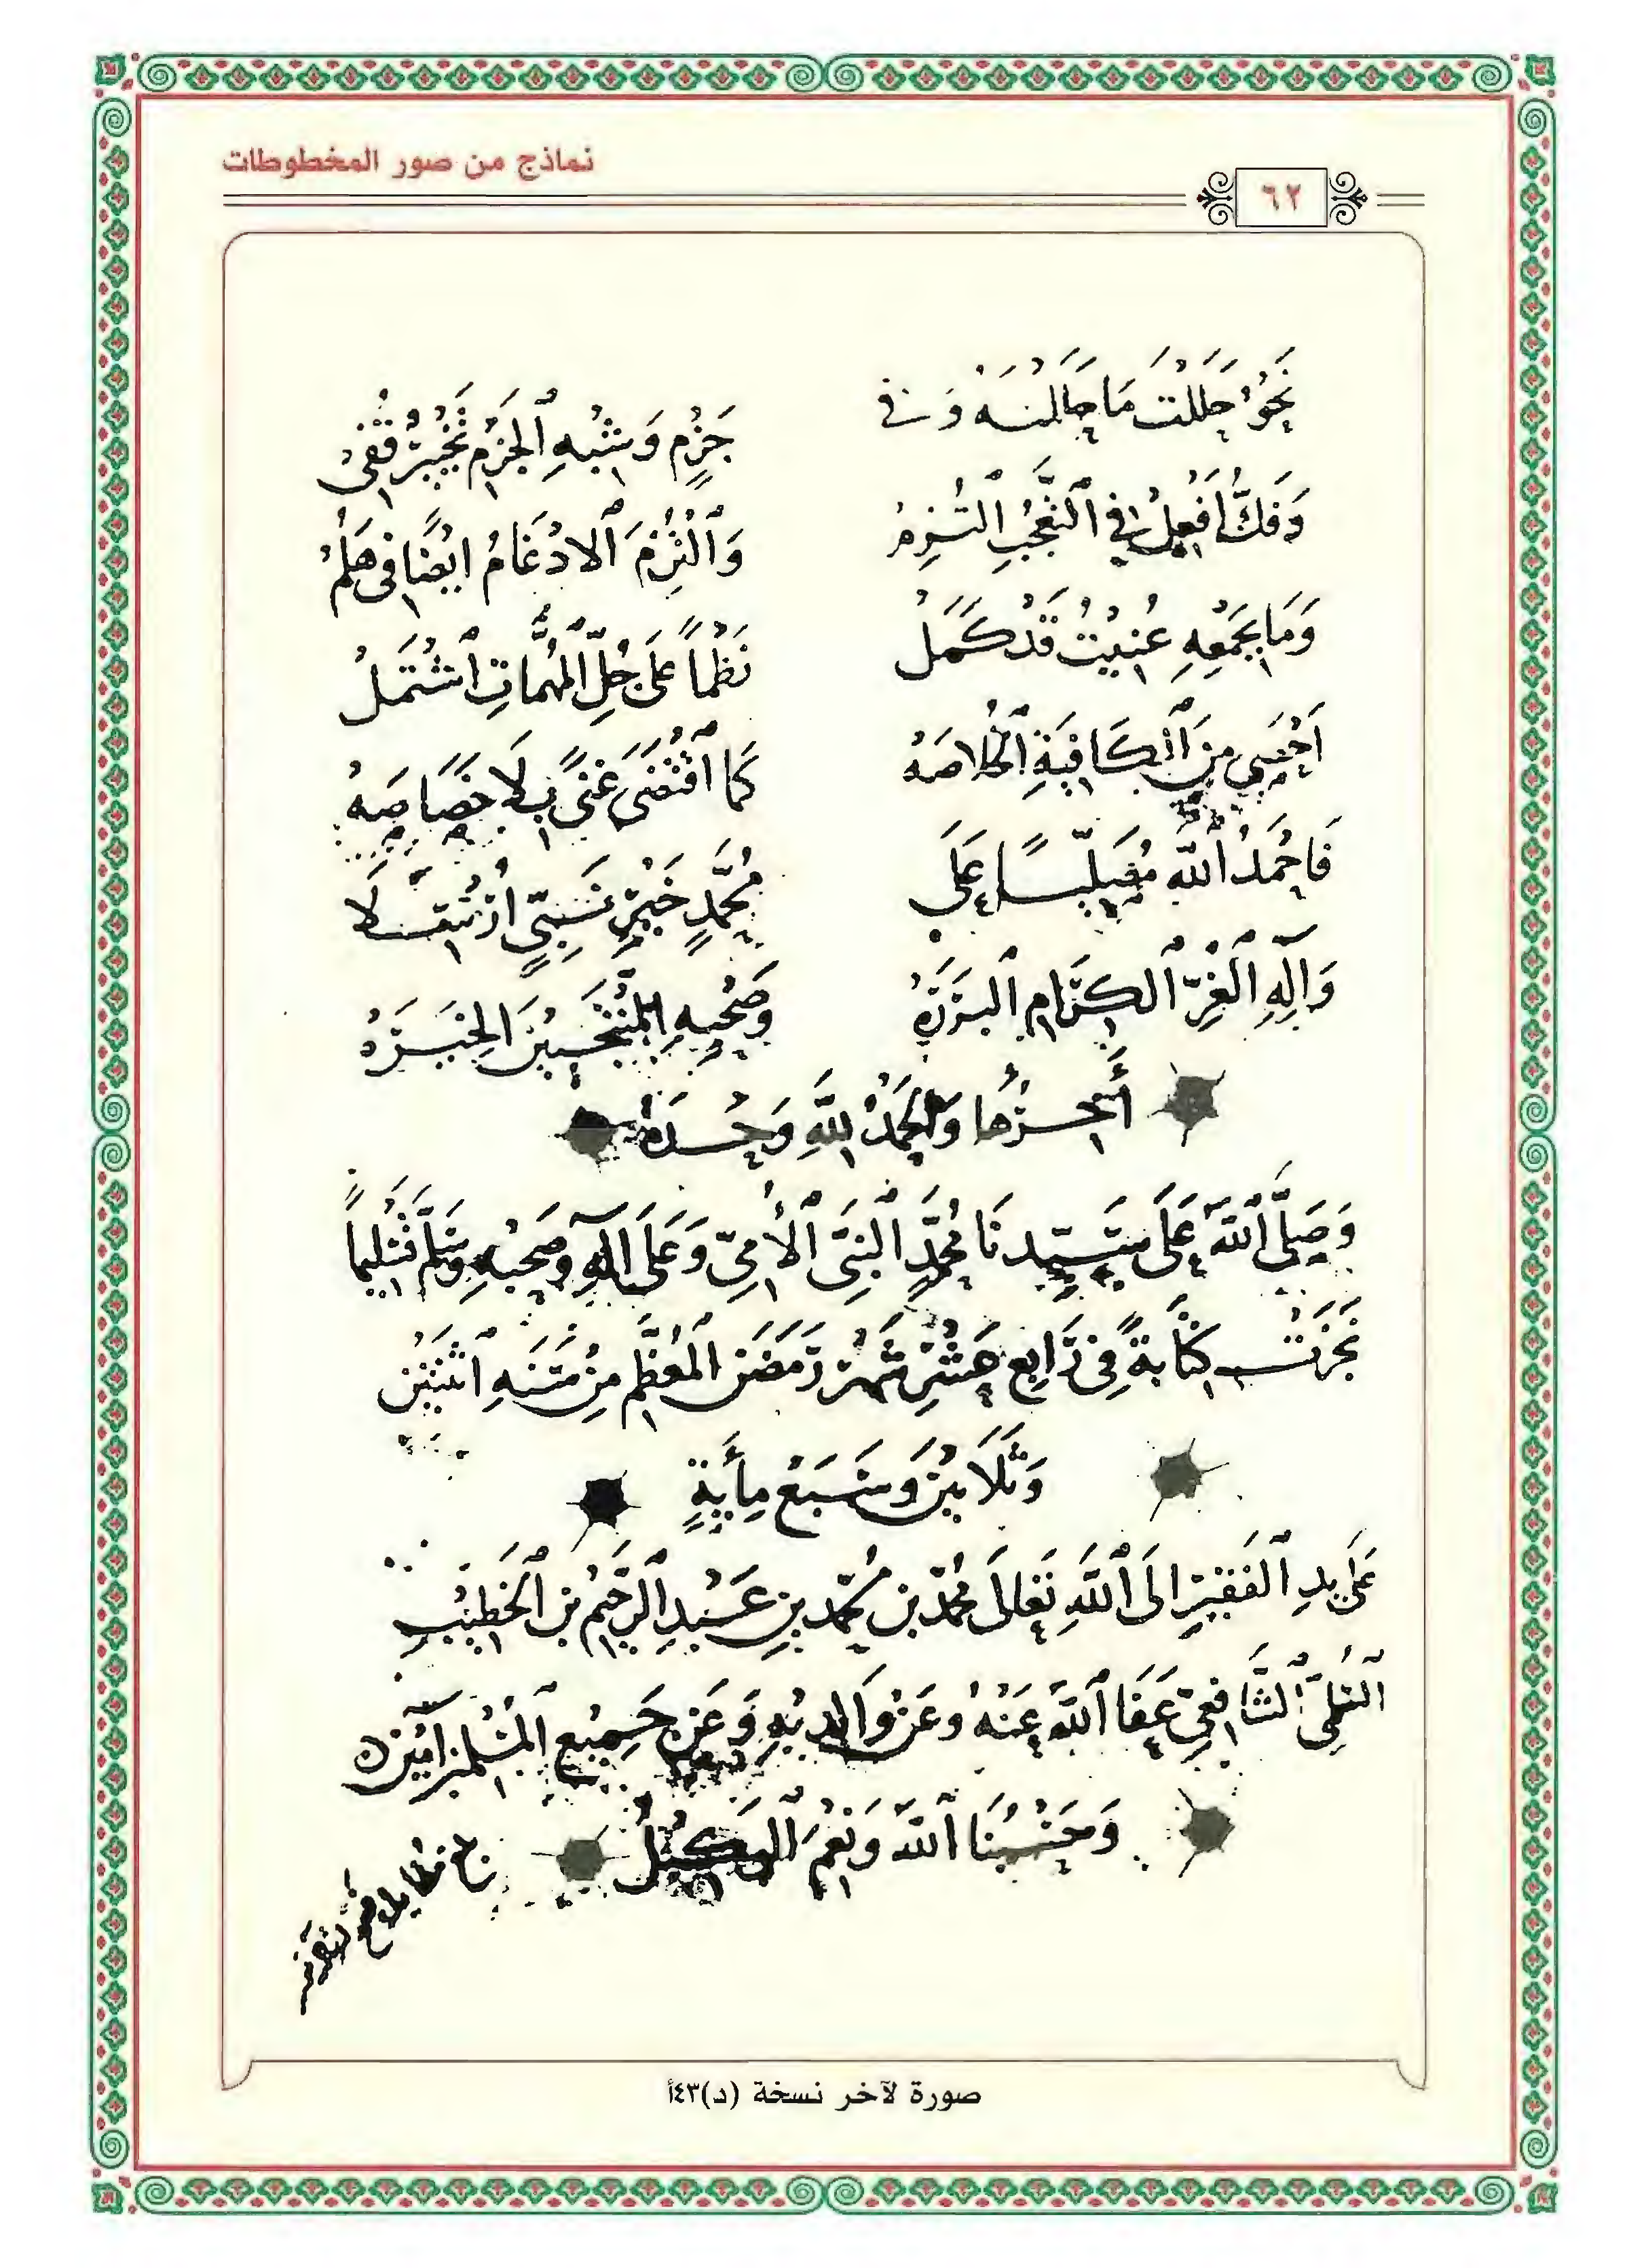 نماذج من صور المخطوطات
٦٢
نَحْوُ حَلَلْتُ مَا حَلَلْنَهْ وَفي جَزْمٍ وَشِبْهِ ٱلجَزْمِ تَخْيِيْرٌ قُفِيْ
وَفَكُّ أَفْعِلْ فِي ٱلتَّعَجُّبِ ٱلْتُزِمْ وَٱلْتُزِمَ ٱلادْغَامُ ايْضًا فى هَلُمْ
وَمَا بِجَمْعِهِ عُنِيْتُ قَدْ كَمَلْ نَظْماً عَلَى جُلِّ ٱلمُهِمَّاتِ ٱشْتَمَلْ
أَحْصَى مِنَ ٱلْكَافِيَةِ ٱلْخُلاصَهْ كَمَا ٱقْتَضَى غِنًى بِلَا خَصَاصَهْ
فَاحْمَدُ ٱللهَ مُصَلِّيًا عَلَى مُحَمَّدٍ خَيْرِ نَبِيٍّ أُرْسِلَا
وَآلِهِ ٱلْغُرِّ ٱلْكِرَامِ ٱلبَرَرَهْ وَصَحْبِهِ ٱلْمُنْتَخَبِيْنَ الخِيَرَهْ
آخِرُهَا وَالْحَمْدُ لِلَّهِ وَحْدَهُ
وَصَلَّى ٱللهُ عَلَى سَيِّدِنَا مُحَمَّدٍ ٱلْنَبِىِّ ٱلْأُمِيِّ وَعَلَى آلِهِ وَصَحْبِهِ وَسَلَّمَ تَسْلِيماً
نَجَزَتْ كِتَابةً فِي رَابِعِ عَشْرِ شَهْرِ رَمَضَنَ ٱلْمُعَظَّمِ مِنْ سَنَهِ ٱثْنَتَيْنِ
وَثَلَاثِيْنَ وَسَبْعِ مِأَيةٍ
عَلَى يدِ ٱلْفَقِيْرِ الَى ٱللَّهِ تَعَالَى مُحَمَّدِ بن مُحَمَّد بنِ عَبْدِ ٱلرَّحِيْمِ بن ٱلْخَطِيْبِ
ٱلشَّافِعِيِّ عَفَا ٱللهُ عَنْهُ وعَنْ وَالِدِيْهِ وَعَن جَمِيْعِ ٱلْمُسْلِمِيْنَ آمِيْنَ
وَحَسْبُنَا ٱللهُ وَنِعْمَ ٱلوَكِيْلُ
صورة لآخر نسخة (د)٤٣أ